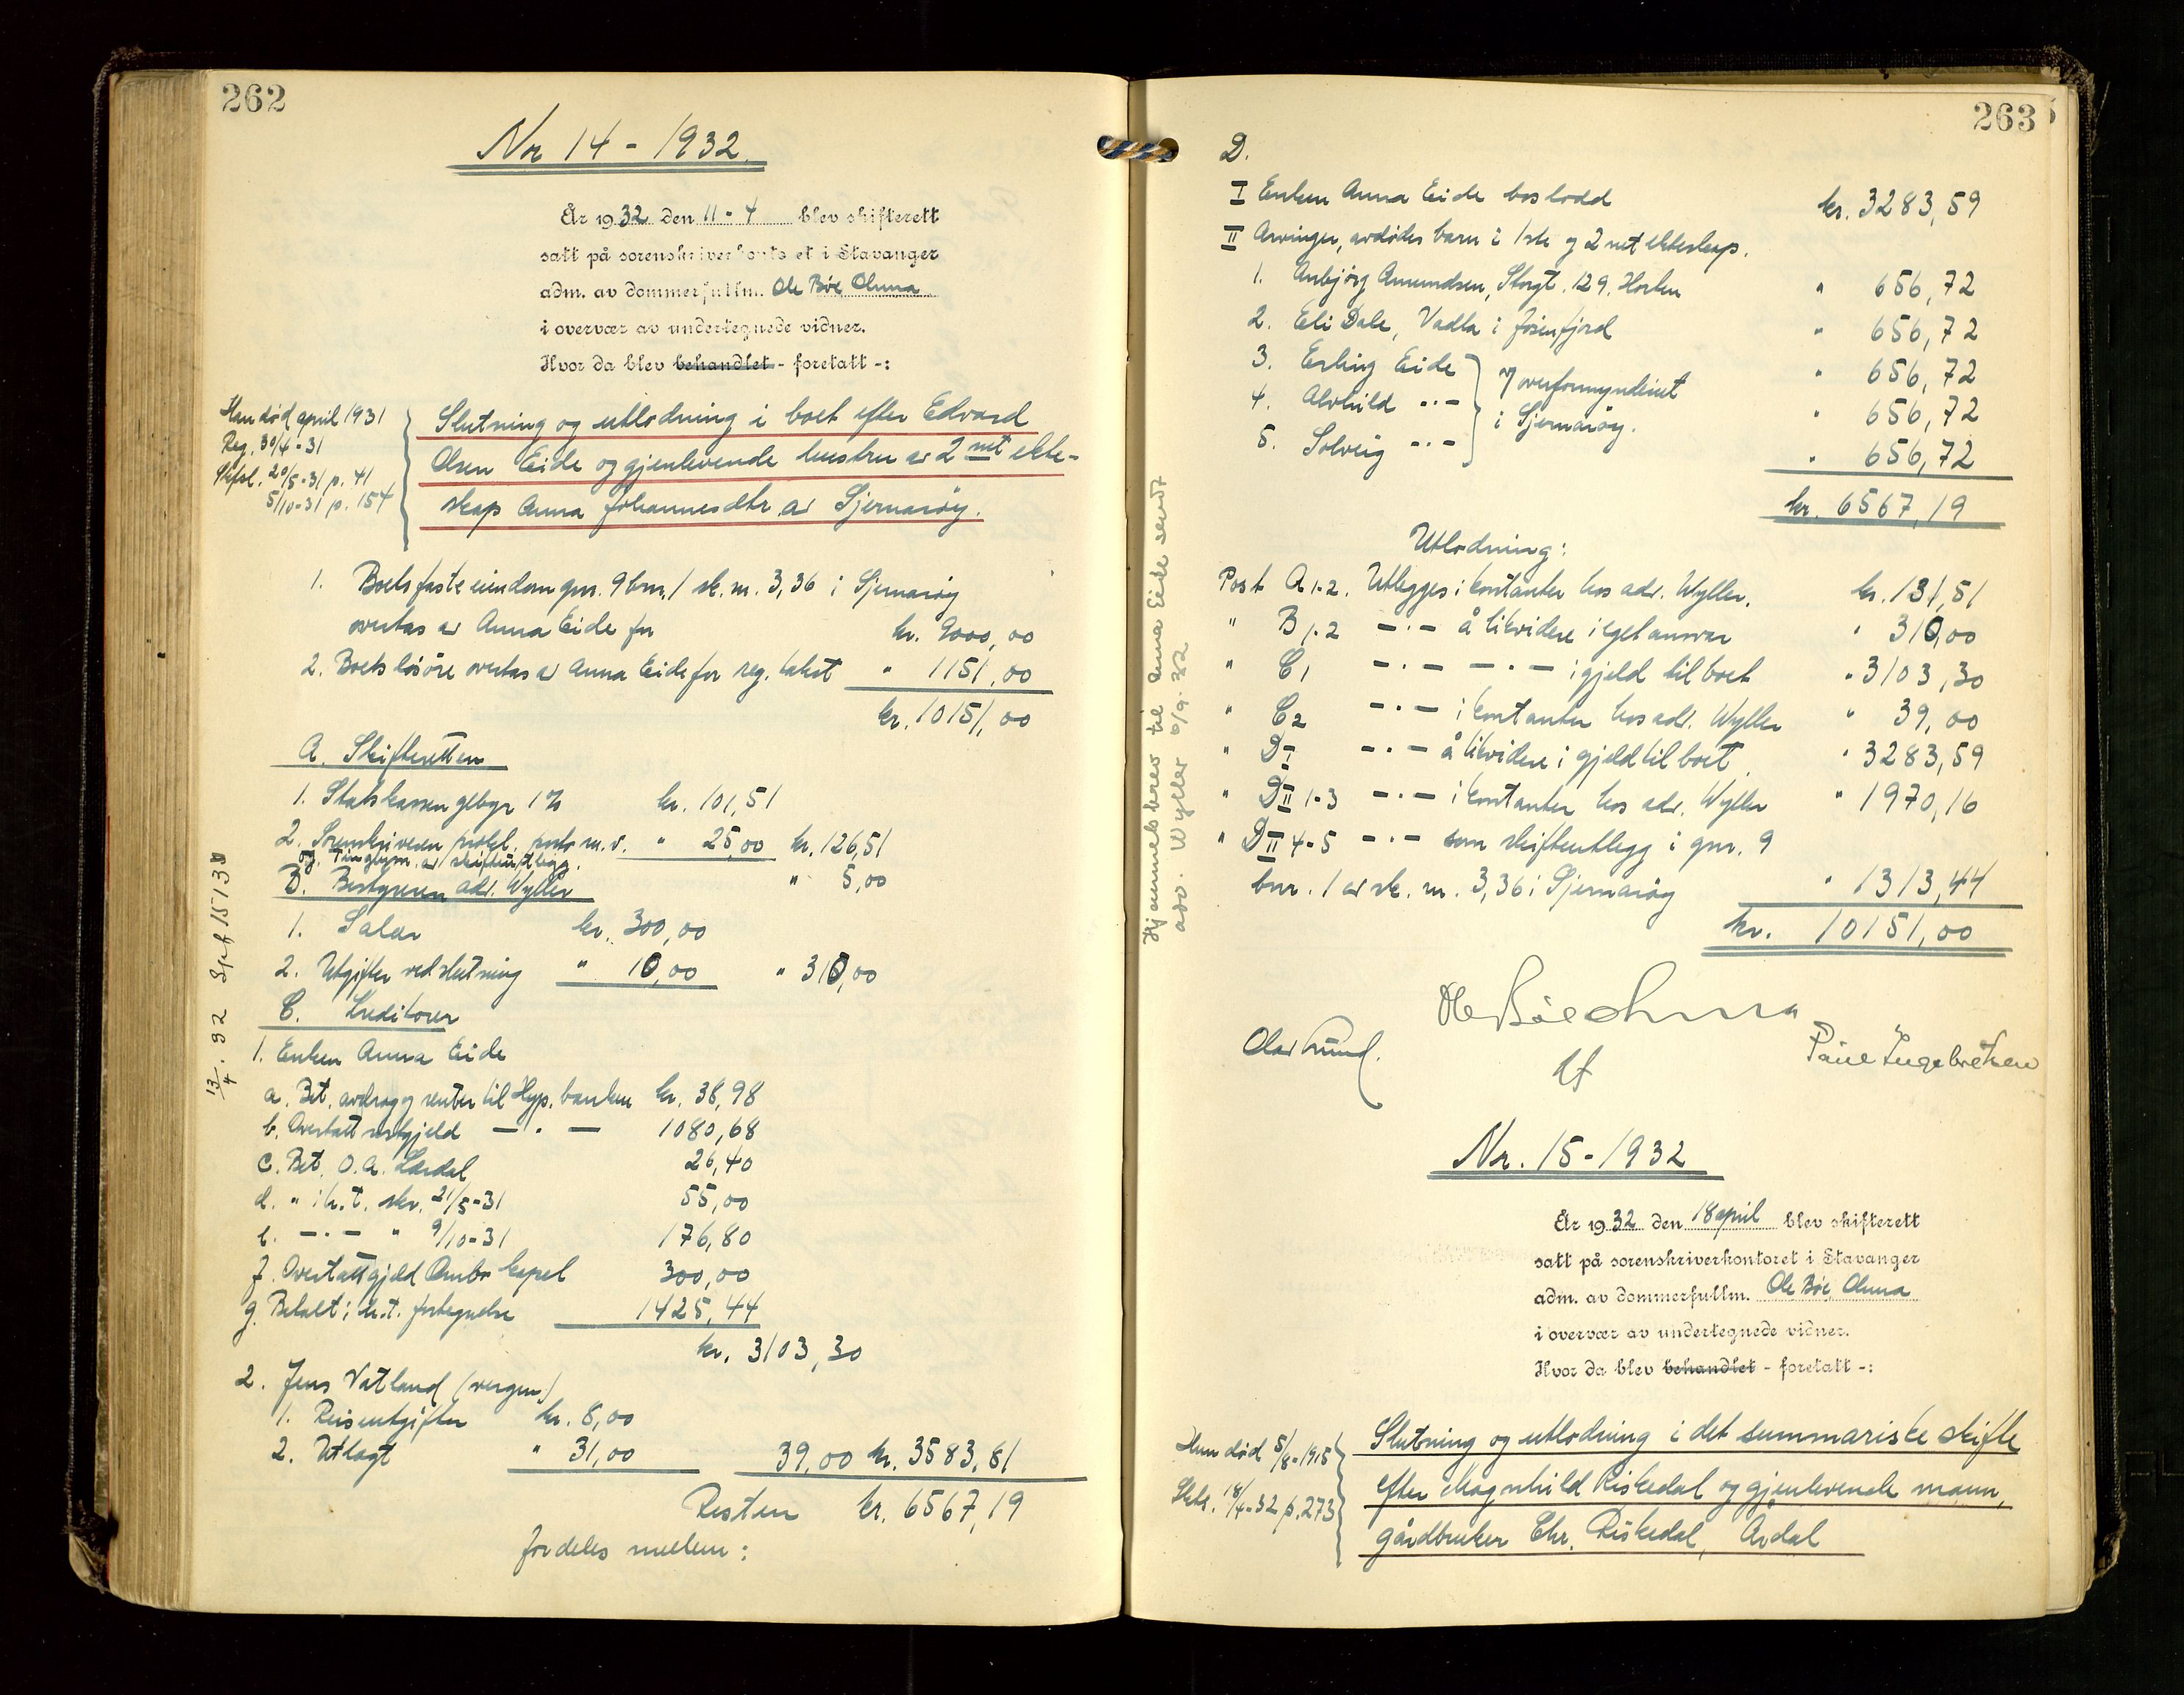 262
Nr 14 - 1932.
År 1932 den 11 - 4 blev skifterett
satt på sorenskriverkontoret i Stavanger
adm. av dommerfullm. Ole Bøe Oluna
i overvær av undertegnede vidner.
Hvor da blev behandlet - foretatt -:
Han død april 1931
Reg. 30/4 - 31
Skifsl. 20/5 - 31 p. 41
5/10 - 31 p. 154
Slutning og utlodning i boet efter Edvard
Olsen Eide og gjenlevende hustru av 2 net ekte-
skap Anna Johannesdtr. av Sjernarøy.
1. Boets faste eiendom gnr. 9 bnr. 1 sk. m. 3,36 i Sjernarøy
overtas av Anna Eide for kr. 9000,00
2. Boets løsøre overtas av Anna Eide for reg. takst " 1151,00
kr. 10151,00
A. Skifteretten
1. Statskassen gebyr 1 % kr. 101,51
2. Sorenskriveren protol. porto m. v. " 25,00 kr. 126,51
og Tinglysn. av skifteutlegg. " 5,00
B. Bestyreren adv. Wyller
1. Salær kr. 300,00
2. Utgifter ved slutning " 10,00 " 310,00
C. Kreditorer
1. Enken Anna Eide
a. Bet. avdrag og renter til Hyp. banken kr. 38,98
b. Overtatt restgjeld — · — 1080,68
c. Bet. O. A. Lærdal 26,40
d. " i h. t. skr. 21/5 - 31 55,00
e. — · — " 9/10 - 31 176,80
f. Overtatt gjeld Ombo kapel 300,00
g. Betalt i h. t. fortegnelse 1425,44
kr. 3103,30
2. Jens Vatland (vergen)
1. Reiseutgifter kr. 8,00
2. Utlagt " 31,00 39,00 kr. 3583,81
Resten kr. 6567,19
fordeles mellem:
263
D.
I Enken Anna Eide boslodd kr. 3283,59
II Arvinger, avdødes barn i 1ste og 2 net ekteskap.
1. Anbjørg Amundsen, Storgt. 129. Horten " 656,72
2. Eli Dale, Vadla i Jøsenfjord " 656,72
3. Erling Eide " 656,72
4. Alvhild " - " 656,72
5. Solveig " - " 656,72
v/ overformynderiet
i Sjernarøy.
kr. 6567,19
Utlodning:
Post A 1-2. Utlegges i kontanter hos adv. Wyller. kr. 131,51
" B 1-2 — · — å likvidere i eget ansvar " 310,00
" C 1 — · — — · — i gjeld til boet " 3103,30
" C 2 — · — i kontanter hos adv. Wyller " 39,00
" D I — · — å likvidere i gjeld til boet " 3283,59
" D II 1-3 — · — i kontanter hos adv. Wyller " 1970,16
" D II 4-5 — · — som skifteutlegg i gnr. 9
bnr. 1 av sk. m. 3,36 i Sjernarøy " 1313,44
kr. 10151,00
Hjemmelsbrev til Anna Eide sendt
adv. Wyller 6/9. 32
Ole Bøe Oluna
Paul Ingebretsen
Nr. 15 - 1932
År 1932 den 18 april blev skifterett
satt på sorenskriverkontoret i Stavanger
adm. av dommerfullm. Ole Bøe Oluna
i overvær av undertegnede vidner.
Hvor da blev behandlet - foretatt -:
Hun død 5/8 - 1915
18/4 - 32 p. 273
Slutning og utlodning i det summariske skifte
efter Magnhild Riskedal og gjenlevende mann,
gårdbruker Chr. Riskedal, Årdal